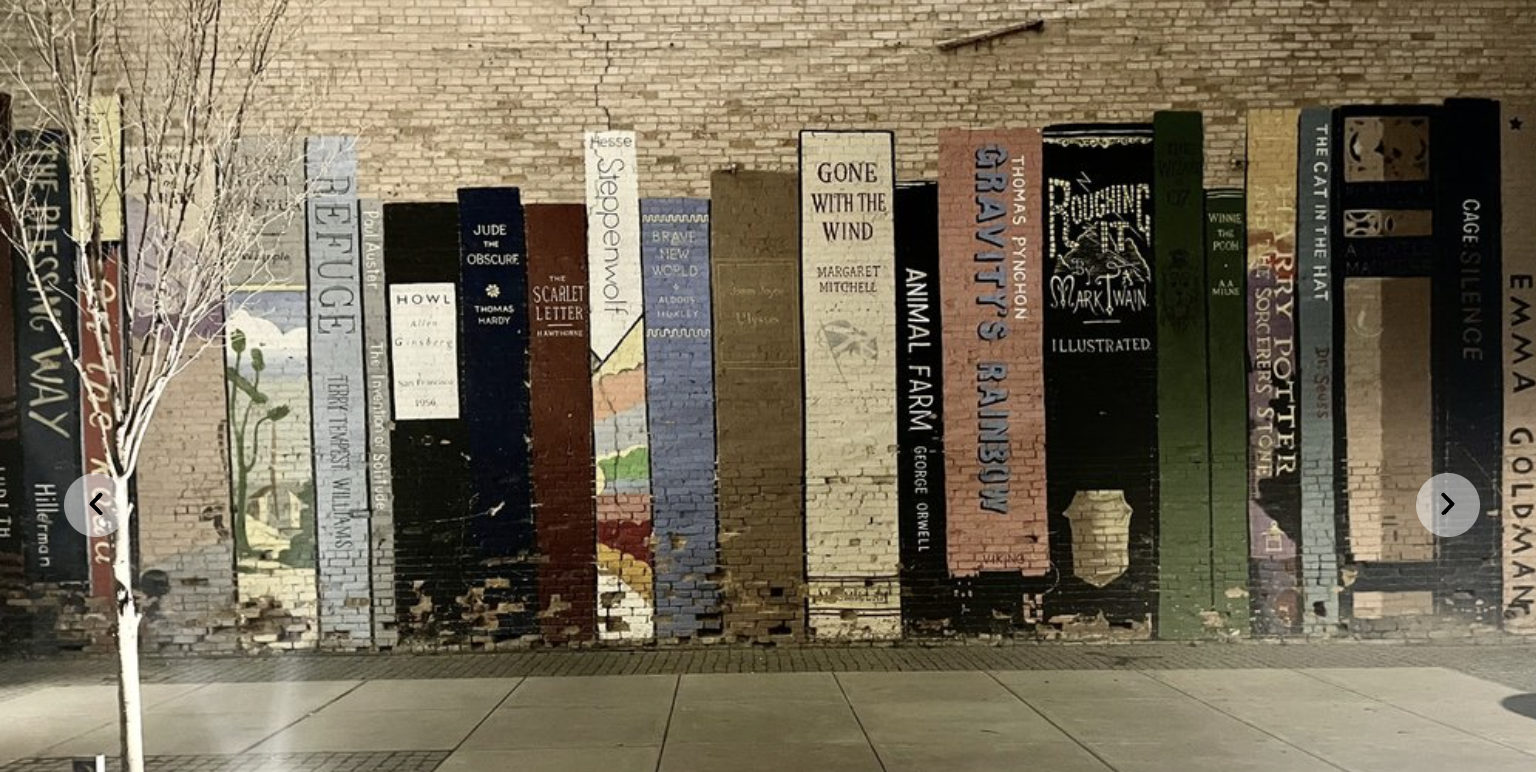 THE BLESSING WAY
Hillerman
On the Road
GRAPES
OF
WRATH
Whipple
REFUGE
TERRY TEMPEST WILLIAMS
Paul Auster
The Invention of Solitude
HOWL
Allen
Ginsberg
San Francisco
1956
JUDE
THE
OBSCURE
THOMAS
HARDY
THE
SCARLET
LETTER
HAWTHORNE
Hesse
Steppenwolf
BRAVE
NEW
WORLD
ALDOUS
HUXLEY
James Joyce
Ulysses
GONE
WITH THE
WIND
MARGARET
MITCHELL
ANIMAL FARM
GEORGE ORWELL
THOMAS PYNCHON
GRAVITY'S RAINBOW
VIKING
ROUGHING
IT
MARK TWAIN.
ILLUSTRATED.
THE
WIZARD
OZ
WINNIE
THE
POOH
A.A.
MILNE
HARRY POTTER
THE SORCERER'S STONE
THE CAT IN THE HAT
Dr. Seuss
CAGE SILENCE
EMMA GOLDMAN